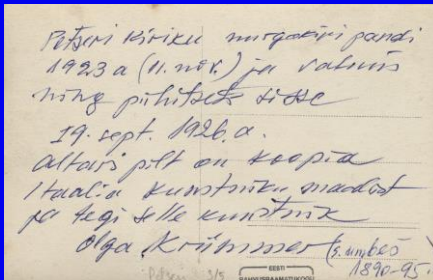 Petseri Kiriku nurgakivi pandi
1923 a (11. nov.) ja valmis
ning pühitseti sisse
19. sept. 1926. a.
Altari pilt on koopia
Itaalia kunstniku
ja tegi selle kunstnik
Olga Krümmer (s. umbes
1890-95)
EESTI
RAHVUSRAAMATUKOGU